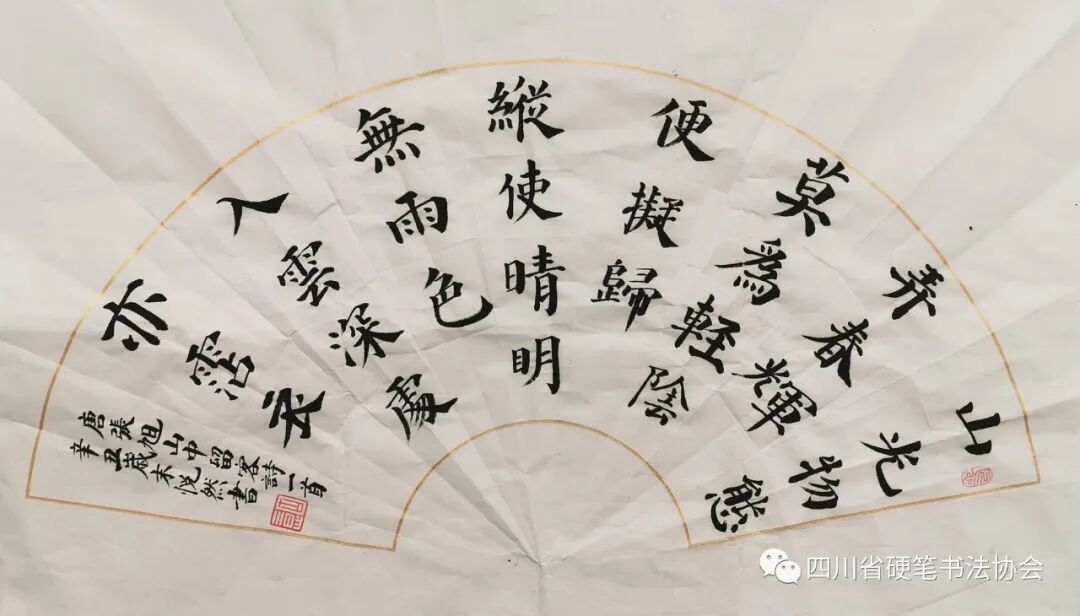 山光物態
弄春輝
莫為軽陰
便擬歸
縱使晴明
無雨色
入雲深處
亦霑衣
唐張旭山中留客詩一首
辛丑歲末悅然書
四川省硬笔书法协会